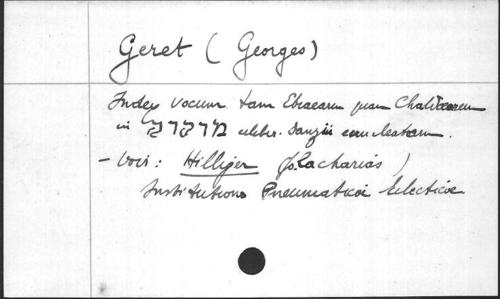 Geret (Georges)
Index vocum tam Ebraearum quam Chaldaearum
in מדקדק celebr. Danzii enucleatarum.
- Voir : Hilliger (Zacharias)
Institutiones Pneumaticae Eclecticae